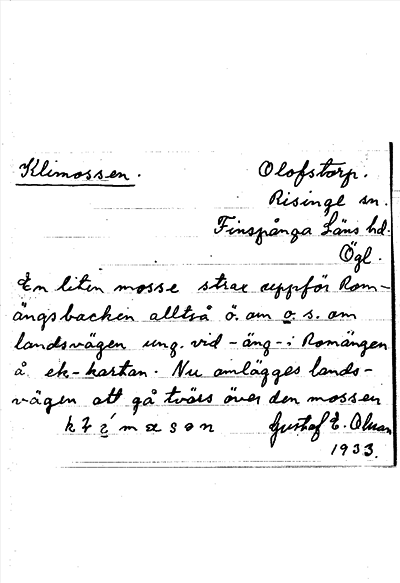 Klimossen.
Olofstorp.
Risinge sn.
Finspånga Läns hd.
Ögl.
En liten mosse strax uppför Rom-
ängsbacken alltså ö. om o. s. om
landsvägen ung. vid -äng- i Romängen
å ek-kartan. Nu omlägges lands-
vägen att gå tvärs över den mossen
Gustaf E. Olsson
1933.